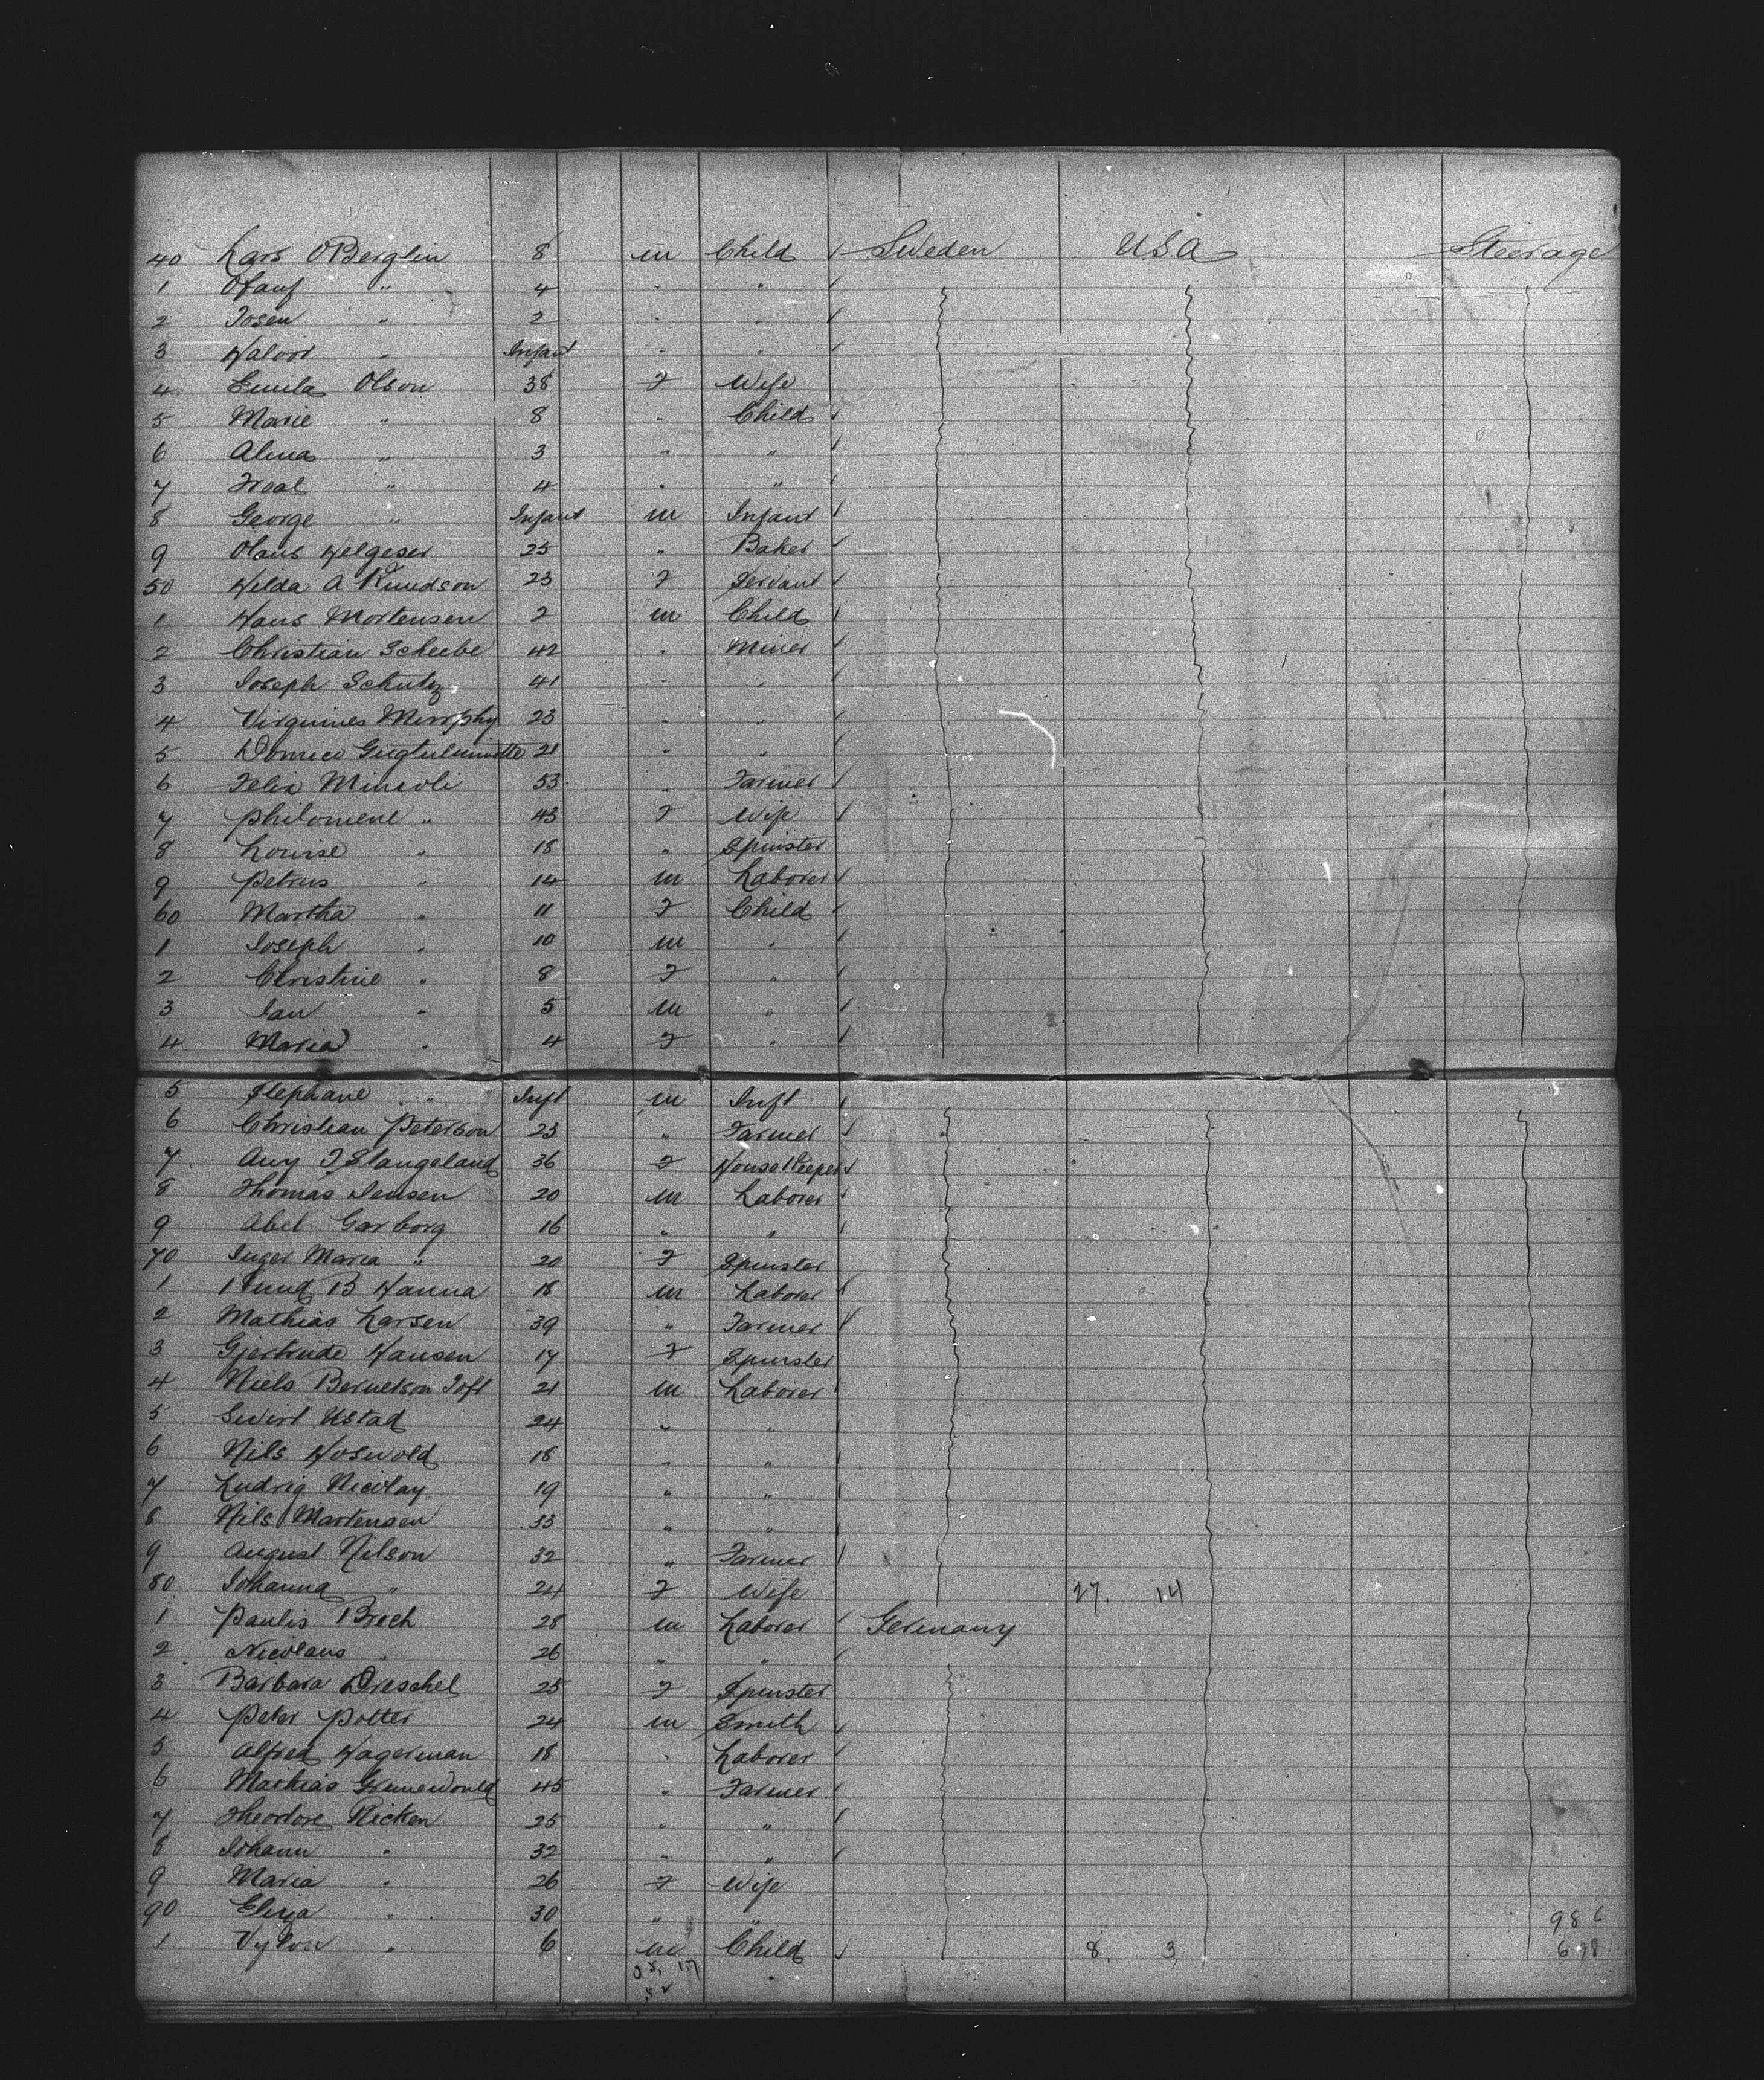 40 Lars O Berglin 8 m Child Sweden USA Steerage
1 Olauf " 4 " "
2 Josen " 2 " "
3 Halvor " Infant " "
4 Emila Olson 38 F Wife
5 Marie " 8 " Child
6 Alma " 3 " "
7 " 4 " "
8 George " Infant m Infant
9 Olaus Helgeser 25 " Baker
50 Hilda A Knudson 23 F Servant
1 Hans Mortensen 2 m Child
2 Christian Scheebe 42 " Miner
3 Joseph Schutz 41 " "
4 Murrphy 23 " "
5 Domico 21 " "
6 Felix 53 " Farmer
7 Philomene " 43 F Wife
8 Louise " 18 " Spinster
9 Petrus " 14 m Laborer
60 Martha " 11 F Child
1 Joseph " 10 m "
2 Christine " 8 F "
3 Jan " 5 m "
4 Maria " 4 F "
5 Stephane " Inft m Inft
6 Christian Peterson 23 " Farmer
7 Any T Slangeland 36 F HouseKeeper
8 Thomas Jensen 20 m Laborer
9 Abel Garborg 16 " "
70 Inger Maria " 20 F Spinster
1 Knud B Hanna 18 m Laborer
2 Mathias Larsen 39 " Farmer
3 Gjertrude Hansen 17 F Spinster
4 Niels Bernetson Toft 21 m Laborer
5 Swirt Ustad 24 " "
6 Nils Hoswold 18 " "
7 Ludvig Nicolay 19 " "
8 Nils Martensen 33 " "
9 August Nilson 32 " Farmer
80 Johanna " 24 F Wife 27. 14
1 Paulis Brech 28 m Laborer Germany
2 Nicolaus " 26 " "
3 Barbara Dreschel 25 F Spinster
4 Peter Potter 24 m Smith
5 Alfred Hagerman 18 " Laborer
6 Mathias Grunewould 45 " Farmer
7 Theodore Ricken 25 " "
8 Johann " 32 " "
9 Maria " 26 F Wife
90 Eliza " 30 " " 986
1 " 6 m Child 8. 3 698